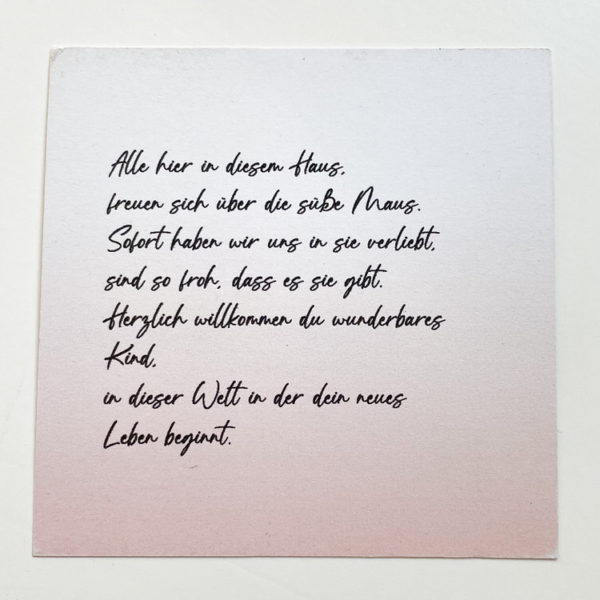 Alle hier in diesem Haus,
freuen sich über die süße Maus.
Sofort haben wir uns in sie verliebt,
sind so froh, dass es sie gibt.
Herzlich willkommen du wunderbares
Kind,
in dieser Welt in der dein neues
Leben beginnt.